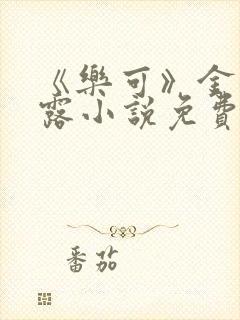 《樂可》金
露小說免費
番茄